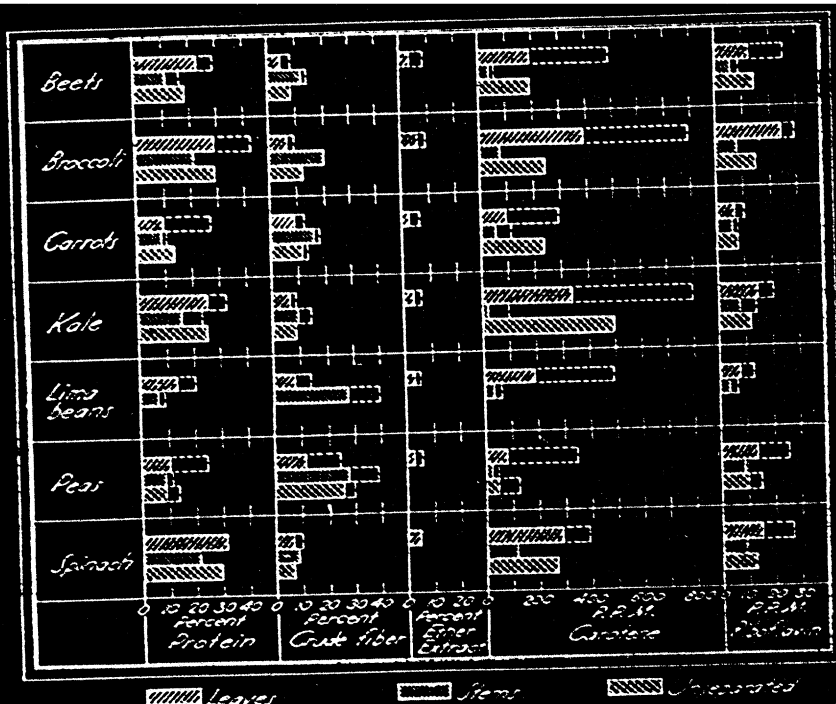 Beets
Broccoli
Carrots
Kale
Lima
beans
Peas
Spinach
0 10 20 30 40
Percent
Protein
0 10 20 30 40
Percent
Crude fiber
0 10 20
Percent
Ether
Extract
0 200 400 600 800
P.P.M.
Carotene
0 10 20 30
P.P.M.
Riboflavin
Leaves
Stems
Unseparated